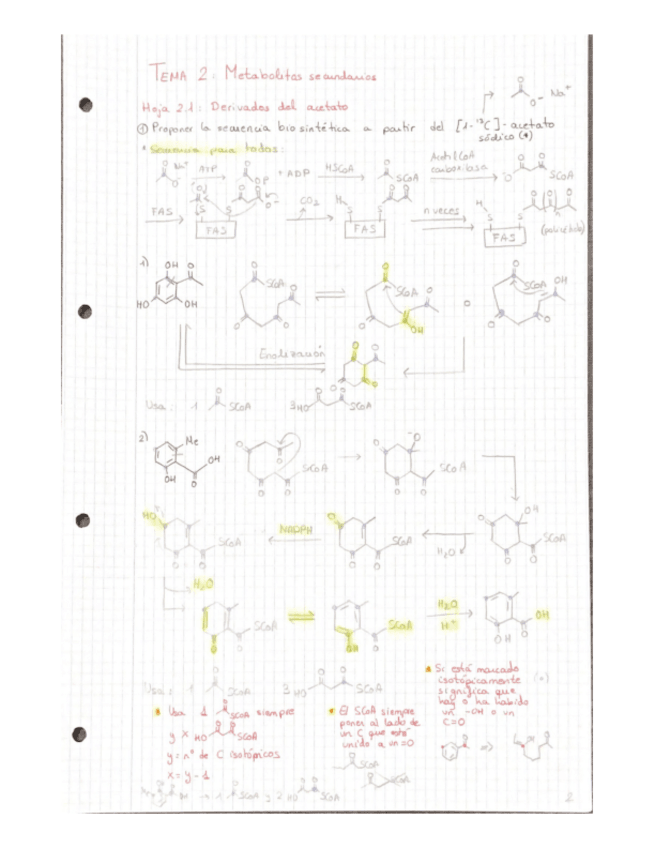 TEMA 2: Metabolitos secundarios
Hoja 2.1: Derivados del acetato
① Proponer la secuencia biosintética a partir del [1-¹³C]-acetato sódico (*)
O⁻ Na⁺
* Secuencia para todos:
Na⁺ ATP OP + ADP HSCoA SCoA Acetil CoA carboxilasa SCoA
FAS CO₂ n veces
FAS FAS FAS (policétido)
1) OH O SCoA SCoA OH SCoA
HO OH
OH
Enolización
Usa: 1 SCoA 3 HO SCoA
2) Me
OH
OH SCoA SCoA
HO SCoA NADPH SCoA H₂O OH SCoA
H₂O
SCoA SCoA H₂O H⁺ OH
OH OH
Usa: 1 SCoA 3 HO SCoA
* Usa 1 SCoA siempre
y x HO SCoA
y = nº de C isotópicos
x = y - 1
* El SCoA siempre
poner al lado de
un C que está
unido a un =O
SCoA
SCoA
* Si está marcado
isotópicamente (*)
significa que
hay o ha habido
un -OH o un
C=O
1 SCoA y 2 HO SCoA
2